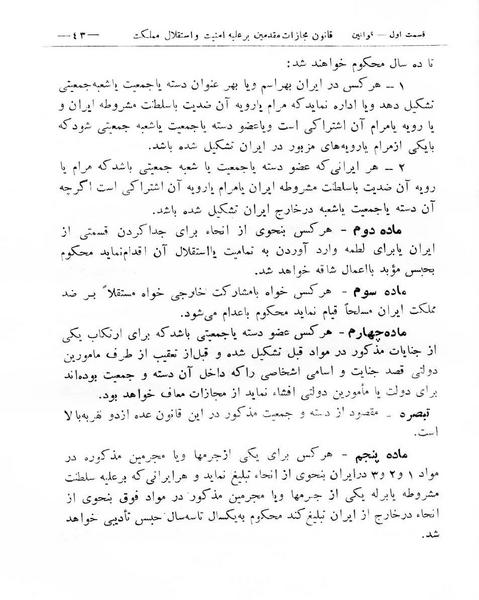 قسمت اول — قوانین قانون مجازات مقدمین برعلیه امنیت و استقلال مملکت —۴۳—
تا ده سال محکوم خواهند شد:
۱ — هرکس در ایران بهراسم ویا بهر عنوان دسته یاجمعیت یاشعبه‌جمعیتی
تشکیل دهد ویا اداره نماید که مرام یارویه آن ضدیت باسلطنت مشروطه ایران و
یا رویه یامرام آن اشتراکی است ویاعضو دسته یاجمعیت یاشعبه جمعیتی شودکه
بایکی ازمرام یارویه‌های مزبور در ایران تشکیل شده باشد.
۲ — هر ایرانی‌که عضو دسته یاجمعیت یا شعبه جمعیتی باشدکه مرام یا
رویه آن ضدیت باسلطنت مشروطه ایران یامرام یارویه آن اشتراکی است اگرچه
آن دسته یاجمعیت یاشعبه درخارج ایران تشکیل شده باشد.
ماده دوم - هرکس بنحوی از انحاء برای جداکردن قسمتی از
ایران یابرای لطمه وارد آوردن به تمامیت یااستقلال آن اقدام‌نماید محکوم
بحبس مؤبد بااعمال شاقه خواهد شد.
ماده سوم - هرکس خواه بامشارکت خارجی خواه مستقلاً بر ضد
مملکت ایران مسلحاً قیام نماید محکوم باعدام می‌شود.
ماده‌چهارم - هرکس عضو دسته یاجمعیتی باشدکه برای ارتکاب یکی
از جنایات مذکور در مواد قبل تشکیل شده و قبل‌از تعقیب از طرف مأمورین
دولتی قصد جنایت و اسامی اشخاصی راکه داخل آن دسته و جمعیت بوده‌اند
برای دولت یا مأمورین دولتی افشاء نماید از مجازات معاف خواهد بود.
تبصره - مقصود از دسته و جمعیت مذکور در این قانون عده ازدو نفربه‌بالا
است.
ماده پنجم - هرکس برای یکی ازجرمها ویا مجرمین مذکوره در
مواد ۱ و۲ و۳ درایران بنحوی از انحاء تبلیغ نماید و هرایرانی‌که برعلیه سلطنت
مشروطه یابرله یکی از جرمها ویا مجرمین مذکور در مواد فوق بنحوی از
انحاء درخارج از ایران تبلیغ‌کند محکوم به‌یکسال تاسه‌سال حبس تأدیبی خواهد
شد.